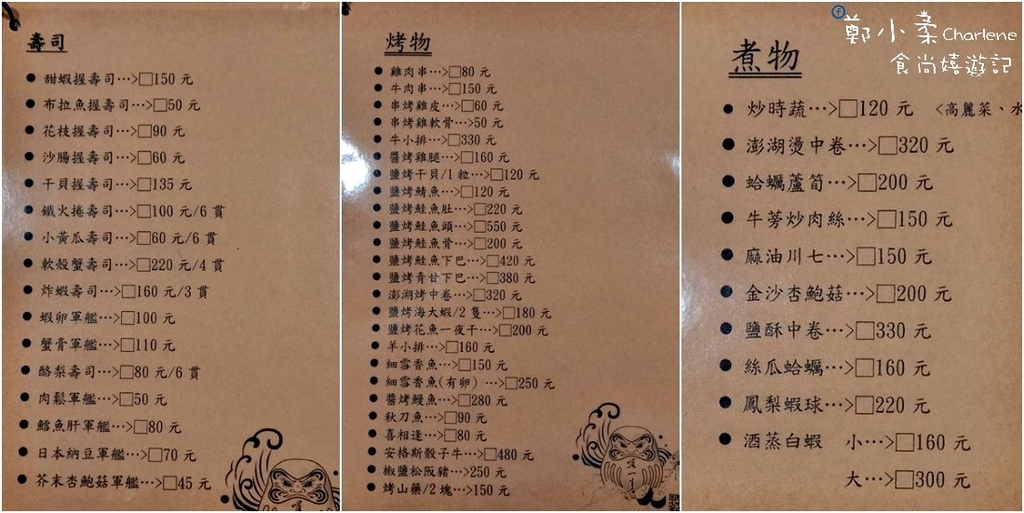 壽司
甜蝦握壽司…>□150 元
布拉魚握壽司…>□50 元
花枝握壽司…>□90 元
沙腸握壽司…>□60 元
干貝握壽司…>□135 元
鐵火捲壽司…>□100 元/6 貫
小黃瓜壽司…>□60 元/6 貫
軟殼蟹壽司…>□220 元/4 貫
炸蝦壽司…>□160 元/3 貫
蝦卵軍艦…>□100 元
蟹膏軍艦…>□110 元
酪梨壽司…>□80 元/6 貫
肉鬆軍艦…>□50 元
鱈魚肝軍艦…>□80 元
日本納豆軍艦…>□70 元
芥末杏鮑菇軍艦…>□45 元
烤物
雞肉串…>□80 元
牛肉串…>□150 元
串烤雞皮…>□60 元
串烤雞軟骨…>50 元
牛小排…>□330 元
醬烤雞腿…>□160 元
鹽烤干貝/1 粒…>□120 元
鹽烤鯖魚…>□120 元
鹽烤鮭魚肚…>□220 元
鹽烤鮭魚頭…>□550 元
鹽烤鮭魚骨…>□200 元
鹽烤鮭魚下巴…>□420 元
鹽烤青甘下巴…>□380 元
澎湖烤中卷…>□320 元
鹽烤海大蝦/2 隻…>□180 元
鹽烤花魚一夜干…>□200 元
羊小排…>□160 元
細雪香魚…>□150 元
細雪香魚(有卵) …>□250 元
醬烤鰻魚…>□280 元
秋刀魚…>□90 元
喜相逢…>□80 元
安格斯骰子牛…>□480 元
椒鹽松阪豬…>250 元
烤山藥/2 塊…>150 元
鄭小柔Charlene
食尚嬉遊記
煮物
炒時蔬…>□120 元 <高麗菜、水
澎湖燙中卷…>□320 元
蛤蠣蘆筍…>□200 元
牛蒡炒肉絲…>□150 元
麻油川七…>□150 元
金沙杏鮑菇…>□200 元
鹽酥中卷…>□330 元
絲瓜蛤蠣…>□160 元
鳳梨蝦球…>□220 元
酒蒸白蝦 小…>□160 元
大…>□300 元